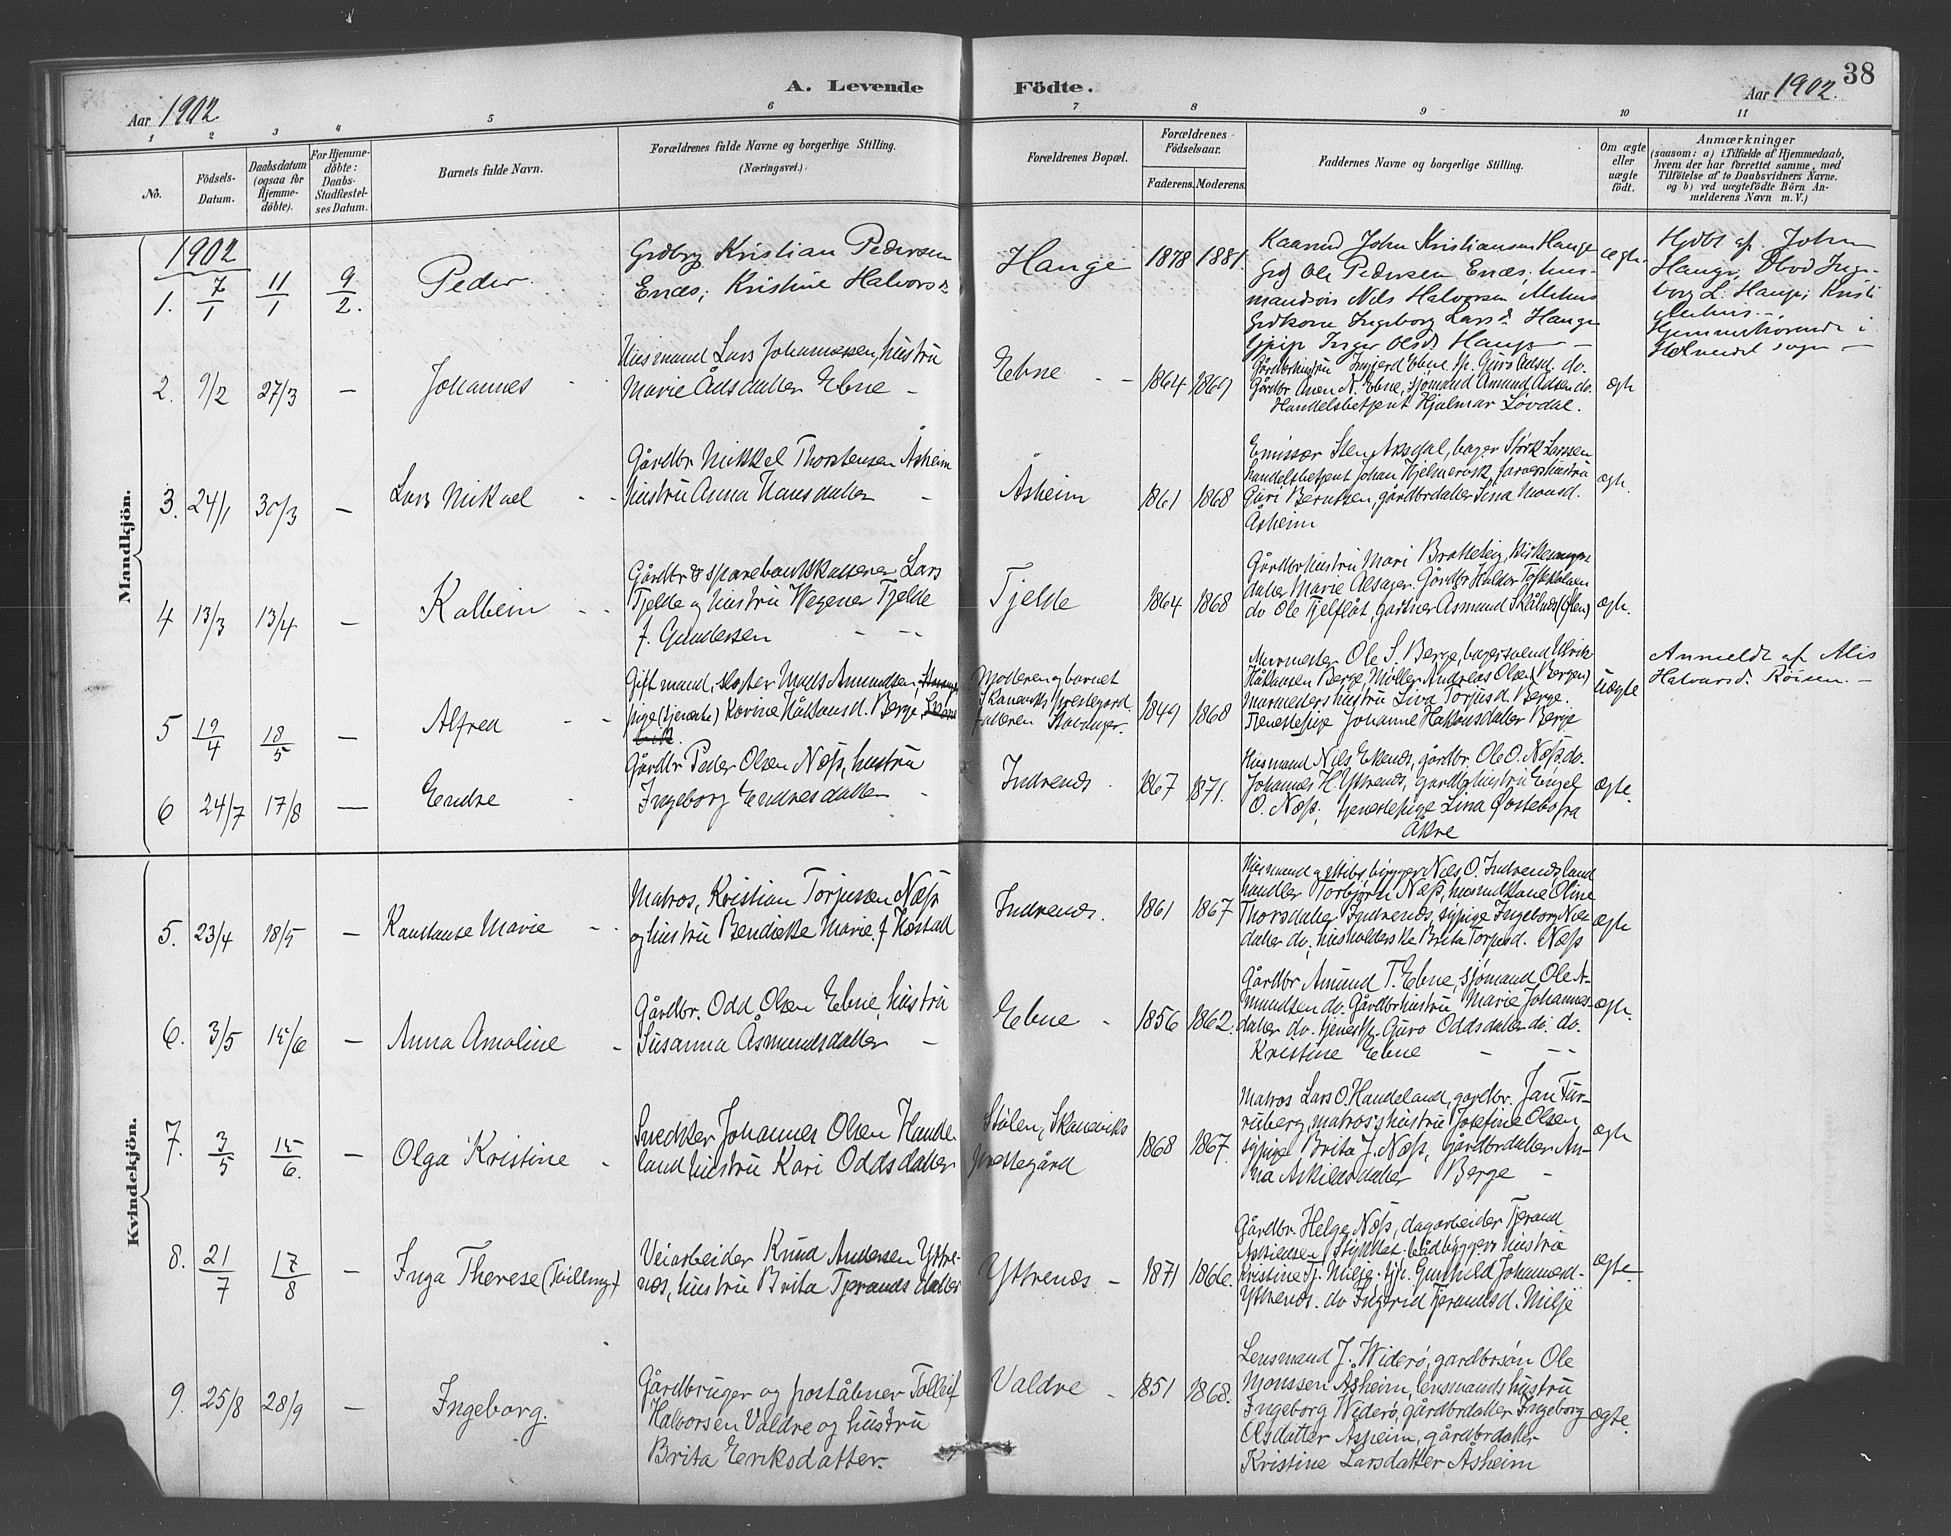 A. Levende Födte.
38
Aar 1902
Aar 1902.
1 2 3 4 5 6 7 8 9 10 11
No.
Födsels-
Datum.
Daabsdatum
(ogsaa for
Hjemme-
döbte).
For Hjemme-
döbte:
Daabs-
Stadfæstel-
ses Datum.
Barnets fulde Navn.
Forældrenes fulde Navne og borgerlige Stilling.
(Næringsvei.)
Forældrenes Bopæl.
Forældrenes
Födselsaar.
Faderens. Moderens.
Faddernes Navne og borgerlige Stilling.
Om ægte
eller
uægte
födt.
Anmærkninger
(saasom: a) i Tilfælde af Hjemmedaab,
hvem der har forrettet samme, med
Tilföielse af to Daabsvidners Navne,
og b) ved uægtefödte Börn An-
melderens Navn m. V.)
Mandkjön.
1902
1. 7/1 11/1 9/2.
Peder
Grdbrg Kristian Pedersen
Enæs; Kristine Halvorsd.
Hange
1878 1881.
Kaarmd John Kristiansen Hange
Grdj Ole Pedersen Enæs; hus-
mandsøn Nils Halvorsen Mehus
Grdkone Ingeborg Larsd. Hange
pige Inger Olsd. Hange
ægte
Hjdbt af John
Hange, Hvod Inge-
borg L. Hange; Kristi
Mehus.
Hjemmehørende i
sogn
2. 9/2 27/3 —
Johannes
Husmand Lars Johannessen, hustru
Marie Ådsdatter Ebne
Ebne
1864 1869
Gårdbrhustru Ingjerd Ebne, p. Guro Adsd. do.
Gårdbr. Anen K. Ebne, sjømand Amund Adsen do.
Handelsbetjent Hjalmar Løvdal.
ægte
3. 24/1 30/3 —
Lars Mikael
Gårdbr Mikkel Thorstensen Åsheim
hustru Anna Hansdatter
Åsheim
1861 1868
Emissær Sten Aksdal, bager Størk Larssen
handelsbetjent Johan Hjelmervik, farverhustru
Guri Berntsen, gårdbrdatter Lina Monsd.
Åsheim
ægte.
4 13/3 13/4 —
Kolbein
Gårdbr & sparebankkasserer Lars
Tjelde og hustru Wegener Tjelde
f. Gundersen
Tjelde
1864 1868
Gårdbrhustru Mari Bratteteig, kirkesanger-
datter Marie Alsager. Gårdbr Haldor
do Ole Tjelflåt, gartner Asmund Skålnes (Ølen)
ægte.
5 12/4 18/5 —
Alfred
Gift mand, sloster Mads Amundsen,
pige (tjeneste) Korine Håkonsd. Berge,
Moderen og barnet
Skånevik's prestegård.
Faderen Stavanger.
1849 1868
Murmester Ole S. Berge, bagersvend Ulrik
Håkonsen Berge, Møller Andreas Olsen (Bergen)
Murmesters hustru Lina Torjusd. Berge
Tjenestepige Johanne Hakonsdatter Berge
Uægte
Anmeldt af Alis
Halvarsd. Røisen. —
6 24/7 17/8 —
Endre
Gårdbr Peder Olsen Næss, hustru
Ingeborg Endresdatter
Indrenæs.
1867 1871.
Husmand Nils Ekenæs, gårdbr. Ole O. Næss, do.
Johannes H. Yttrenæs, Gårdbrhustru Engel
O. Næss, tjenestepige Lina Østebø fra
Åkre
ægte.
Kvindekjön.
5. 23/4 18/5 —
Konstanse Marie
Matros, Kristian Torjussen Næss
og hustru Bendikte Marie, f. Hestad
Indrenæs.
1861 1867
Husmand og bygger Nils O. Indrenæs, land
handler Torbjørn Næss, husmdkone Oline
Thorsdatter Indrenæs, sypige Ingeborg Nils-
datter do.; husholderske Brita Torjusd. Næss
ægte
6. 3/5 15/6 —
Anna Amoline
Gårdbr. Odd Olsen Ebne, hustru
Susanna Åsmundsdatter
Ebne
1856 1862.
Gårdbr Amund T. Ebne, sjømand Ole A-
mundsen do. Gårdbrhustru Marie Johannes-
datter do. tjenestp. Guro Oddsdatter do. do.
Kristine Ebne
ægte.
7. 3/5 15/6. —
Olga Kristine
Snedker Johannes Olsen Hande-
land hustru Kari Oddsdatter
Stølen, Skåneviks
prestegård
1868 1867.
Matros Lars O. Handeland, gårdbr. Jan Tur-
ruberg, matros's hustru Josefine Olsen,
sypige Brita J. Næss, Gårdbrdatter An-
na Askildsdatter Berge
ægte
8. 21/7 17/8 —
Inga Therese (Tvilling)
Veiarbeider Knud Andersen Yttre-
næs, hustru Brita Tjerandsdatter
Yttrenæs
1871 1866.
Gårdbr. Helge Næss, dagarbeider Tjerand
båtbyggers hustru
Kristine Tj. Milje. Gunhild Johannesd.
Yttrenæs. do Ingerid Tjerandsd. Milje
ægte.
9. 25/8 28/9 —
Ingeborg.
Gårdbruger og poståbner Tolleif
Halvorsen Valdre og hustru
Brita Eriksdatter.
Valdre
1851 1868.
Lensmand J. Widerø, gårdbrsøn Ole
Monssen Åsheim, lensmands hustru
Ingeborg Widerø, gårdbrdatter Ingeborg
Olsdatter Åsheim, gårdbrdatter
Kristine Larsdatter Åsheim
ægte.